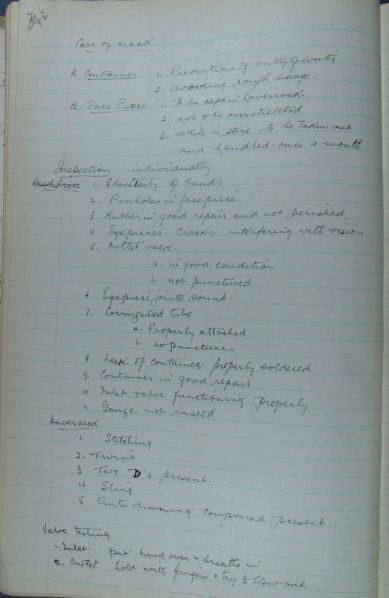 Care of mask
A. Container 1. Prevention of entry of water
2. avoiding rough usage.
B. Face Piece 1. To be kept in haversack.
2. not to be overstretched
3. while in store to be taken out
and handled once a month
Inspection individually
1. Elasticity of bands
2. Pinholes in facepiece
3 Rubber in good repair and not perished
4 Eyepieces. Cracks interfering with vision
5. Outlet valve.
a. in good condition
b. not punctured
6. Eyepiece joints sound.
7. Corrugated tube
a. Properly attached
b. no punctures
8. Neck of container properly soldered
9. Container in good repair
10. Inlet valve functioning properly.
11. Gauze not rusted
Haversack
1. Stitching
2. Twine
3 Two D's present.
4 Sling
5 Anti dimming compound present.
Valve testing
1. Inlet put hand over & breathe in
2. Outlet hold with fingers & try to blow out.